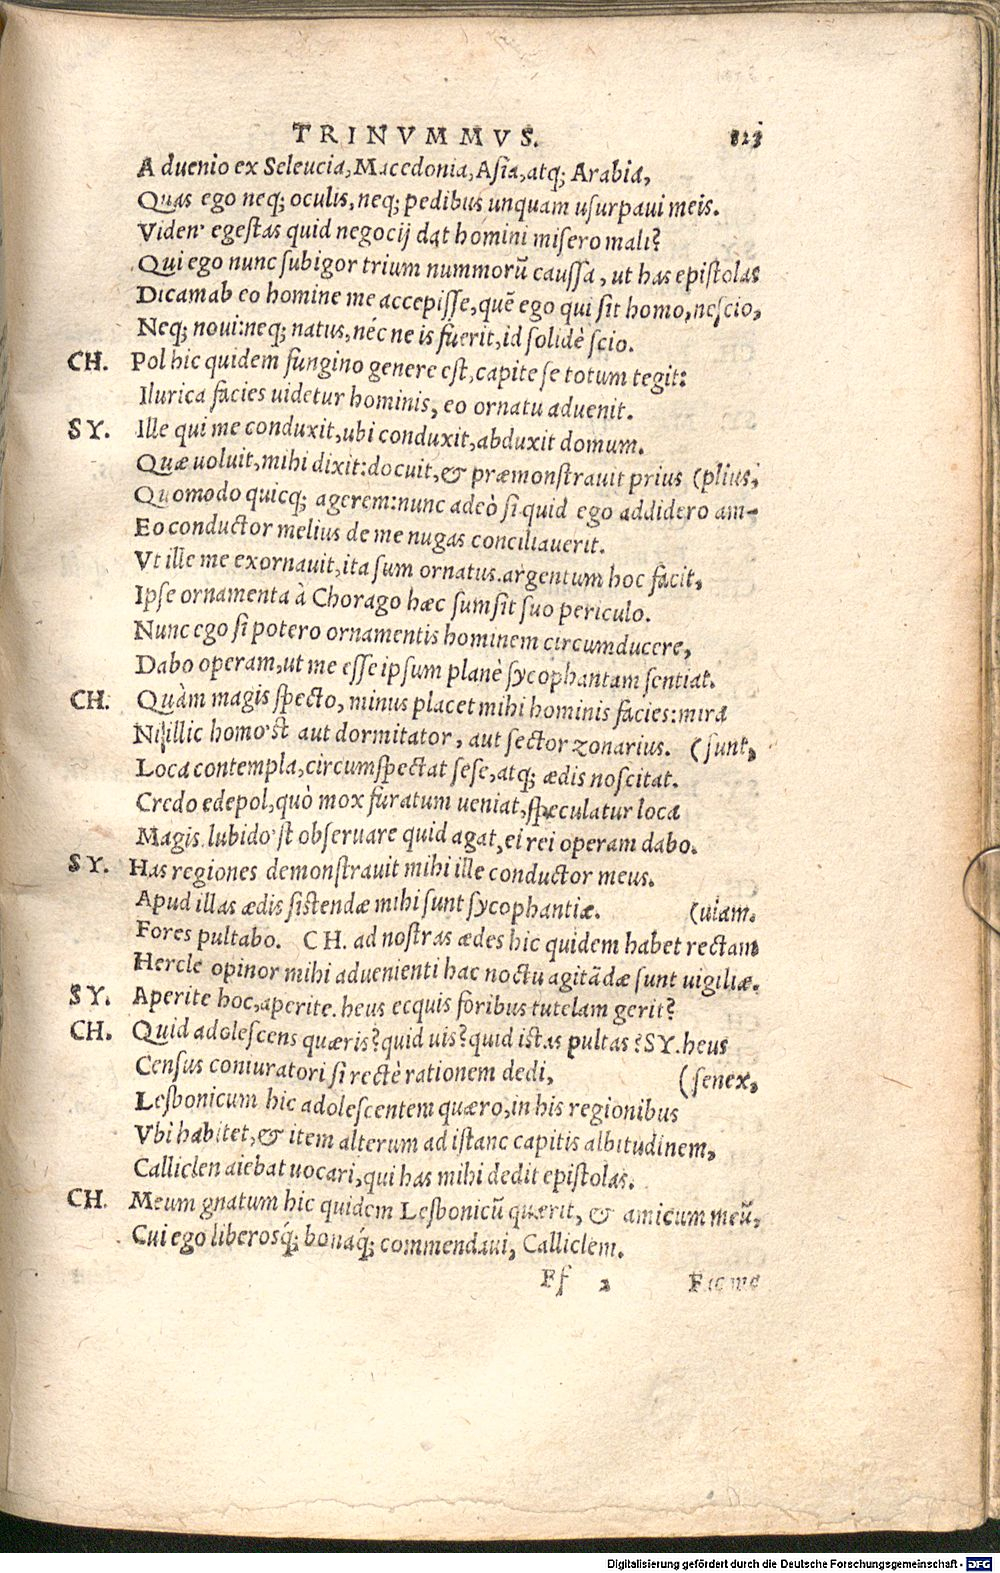 TRINVMMVS. 823
Aduenio ex Seleucia, Macedonia, Asia, atq; Arabia,
Quas ego neq; oculis, neq; pedibus unquam usurpaui meis.
Viden' egestas quid negocij dat homini misero mali?
Qui ego nunc subigor trium nummorū caussa, ut has epistolas
Dicam ab eo homine me accepisse, quē ego qui sit homo, nescio,
Neq; noui: neq; natus, néc ne is fuerit, id solidè scio.
CH. Pol hic quidem fungino genere est, capite se totum tegit:
Ilurica facies uidetur hominis, eo ornatu aduenit.
SY. Ille qui me conduxit, ubi conduxit, abduxit domum.
Quæ uoluit, mihi dixit: docuit, & præmonstrauit prius (plius,
Quomodo quicq; agerem: nunc adeò si quid ego addidero am-
Eo conductor melius de me nugas conciliauerit.
Vt ille me exornauit, ita sum ornatus. argentum hoc facit,
Ipse ornamenta à Chorago hæc sumsit suo periculo.
Nunc ego si potero ornamentis hominem circumducere,
Dabo operam, ut me esse ipsum planè sycophantam sentiat.
CH. Quàm magis specto, minus placet mihi hominis facies: mira
Ni illic homo'st aut dormitator, aut sector zonarius. (sunt,
Loca contempla, circumspectat sese, atq; ædis noscitat.
Credo edepol, quò mox furatum ueniat, speculatur loca
Magis lubido'st obseruare quid agat, ei rei operam dabo.
SY. Has regiones demonstrauit mihi ille conductor meus.
Apud illas ædis sistendæ mihi sunt sycophantiæ. (uiam.
Fores pultabo. CH. ad nostras ædes hic quidem habet rectam
Hercle opinor mihi aduenienti hac noctu agitādæ sunt uigiliæ.
SY. Aperite hoc, aperite. heus ecquis foribus tutelam gerit?
CH. Quid adolescens quæris? quid uis? quid istas pultas? SY. heus
Census coniuratori si rectè rationem dedi, (senex,
Lesbonicum hic adolescentem quæro, in his regionibus
Vbi habitet, & item alterum ad istanc capitis albitudinem,
Calliclen aiebat uocari, qui has mihi dedit epistolas.
CH. Meum gnatum hic quidem Lesbonicū quærit, & amicum meū,
Cui ego liberosq́; bonaq́; commendaui, Calliclem.
Ff 2 Fac me
Digitalisierung gefördert durch die Deutsche Forschungsgemeinschaft - DFG